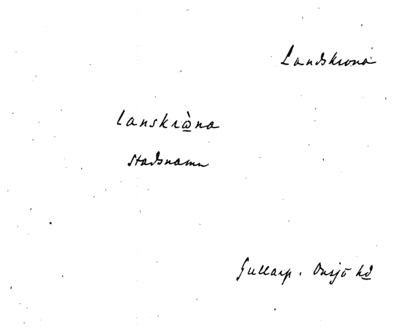 Landskrona
lanskrὼ̲na
stadsnamn
Gullarp. Onsjö hd